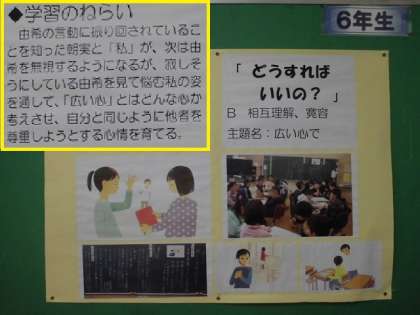 ◆学習のねらい
由希の言動に振り回されているこ
とを知った朝実と「私」が、次は由
希を無視するようになるが、寂しそ
うにしている由希を見て悩む私の姿
を通して、「広い心」とはどんな心か
考えさせ、自分と同じように他者を
尊重しようとする心情を育てる。
6年生
「どうすれば
いいの？」
B 相互理解、寛容
主題名：広い心で